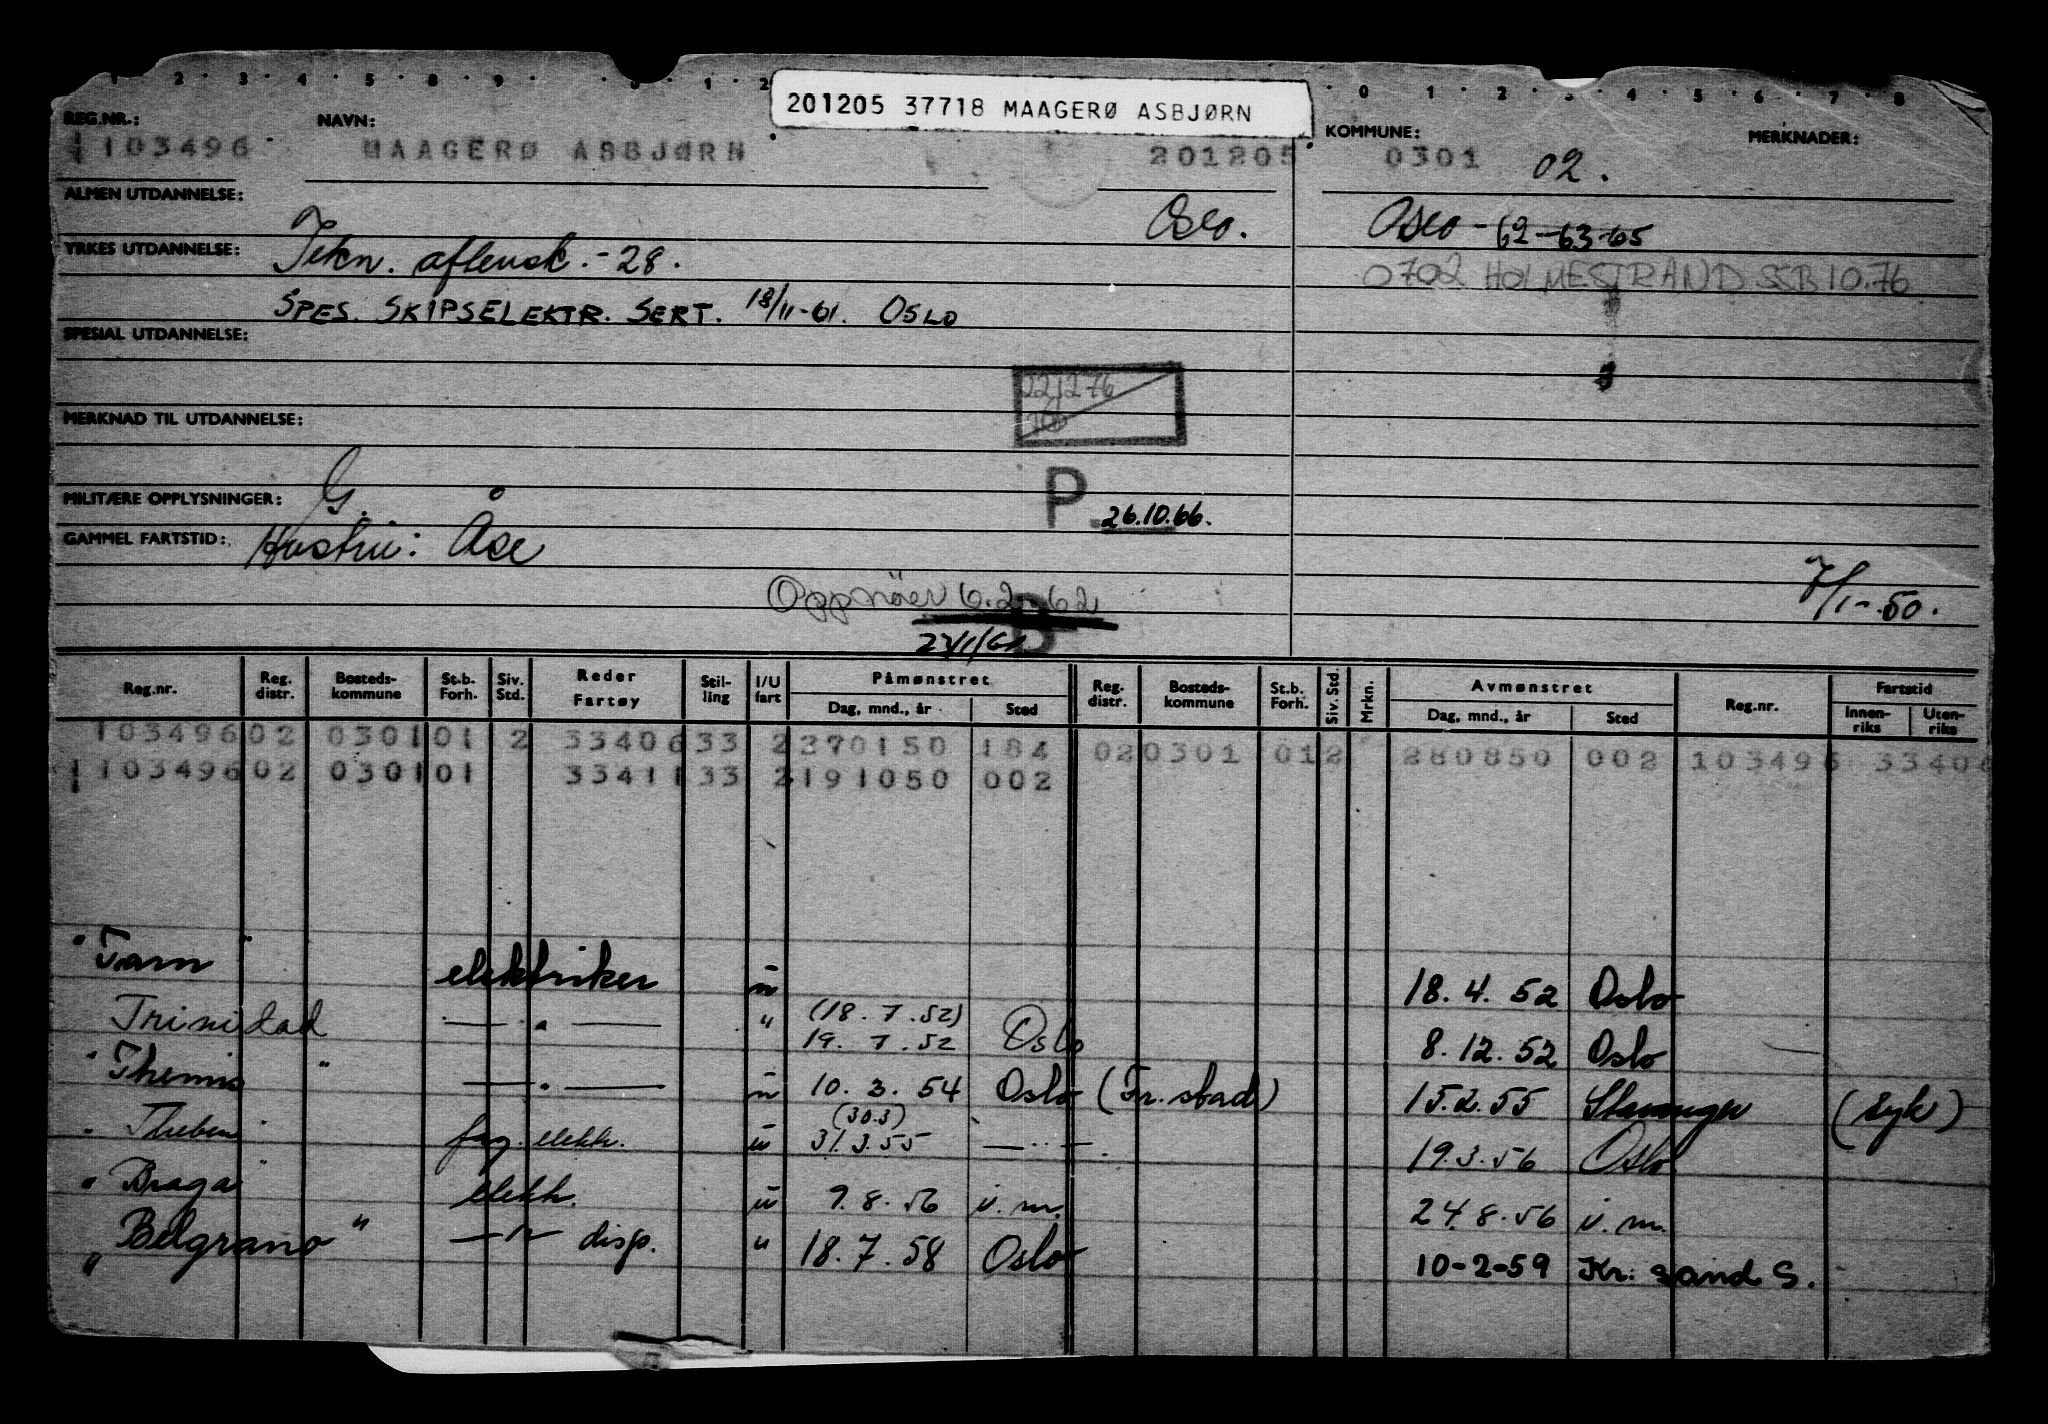 1 2 3 4 5 6 7 8 9 0 1 2 0 1 2 3 4 5 6 7 8
201205 37718 MAAGERØ ASBJØRN
REG.NR.: NAVN: KOMMUNE: MERKNADER:
103496 MAAGERØ ASBJØRN 201205 0301 02.
ALMEN UTDANNELSE:
Oslo. Oslo - 62-63-65
YRKES UTDANNELSE: Tekn. aftensk. - 28.
0702 HOLMESTRAND SSB 10.76
SPES. SKIPSELEKTR. SERT. 18/11-61. OSLO
SPESIAL UTDANNELSE:
221276
MERKNAD TIL UTDANNELSE:
MILITÆRE OPPLYSNINGER: G.
P. 26.10.66.
GAMMEL FARTSTID: Hustru: Åse
7/1-50.
6.2.62
B
Reg.nr. Reg. distr. Bosteds-kommune St.b. Forh. Siv. Std. Reder Fartøy Stil-ling I/U fart Påmønstret Dag, mnd., år Sted Reg. distr. Bosteds-kommune St.b. Forh. Siv. Std. Mrkn. Avmønstret Dag, mnd., år Sted Reg.nr. Fartstid Innen-riks Uten-riks
103496 02 0301 01 2 33406 33 2 270150 184 02 0301 01 2 280850 002 103496 33406
103496 02 0301 01 33411 33 2 191050 002
" Tarn " elektriker u 18.4.52 Oslo
Trinidad — " — " (18.7.52) 19.7.52 Oslo 8.12.52 Oslo
" Themis " — " — u 10.3.54 Oslo (Fr.stad) 15.2.55 Stavanger (syk)
" Theben " elektr. u (30.3) 31.3.55 — " — 19.3.56 Oslo
" Braga " elektr. u 9.8.56 u.m. 24.8.56 u.m.
" Belgrano " — " — disp. " 18.7.58 Oslo 10-2-59 Kr.sand S.